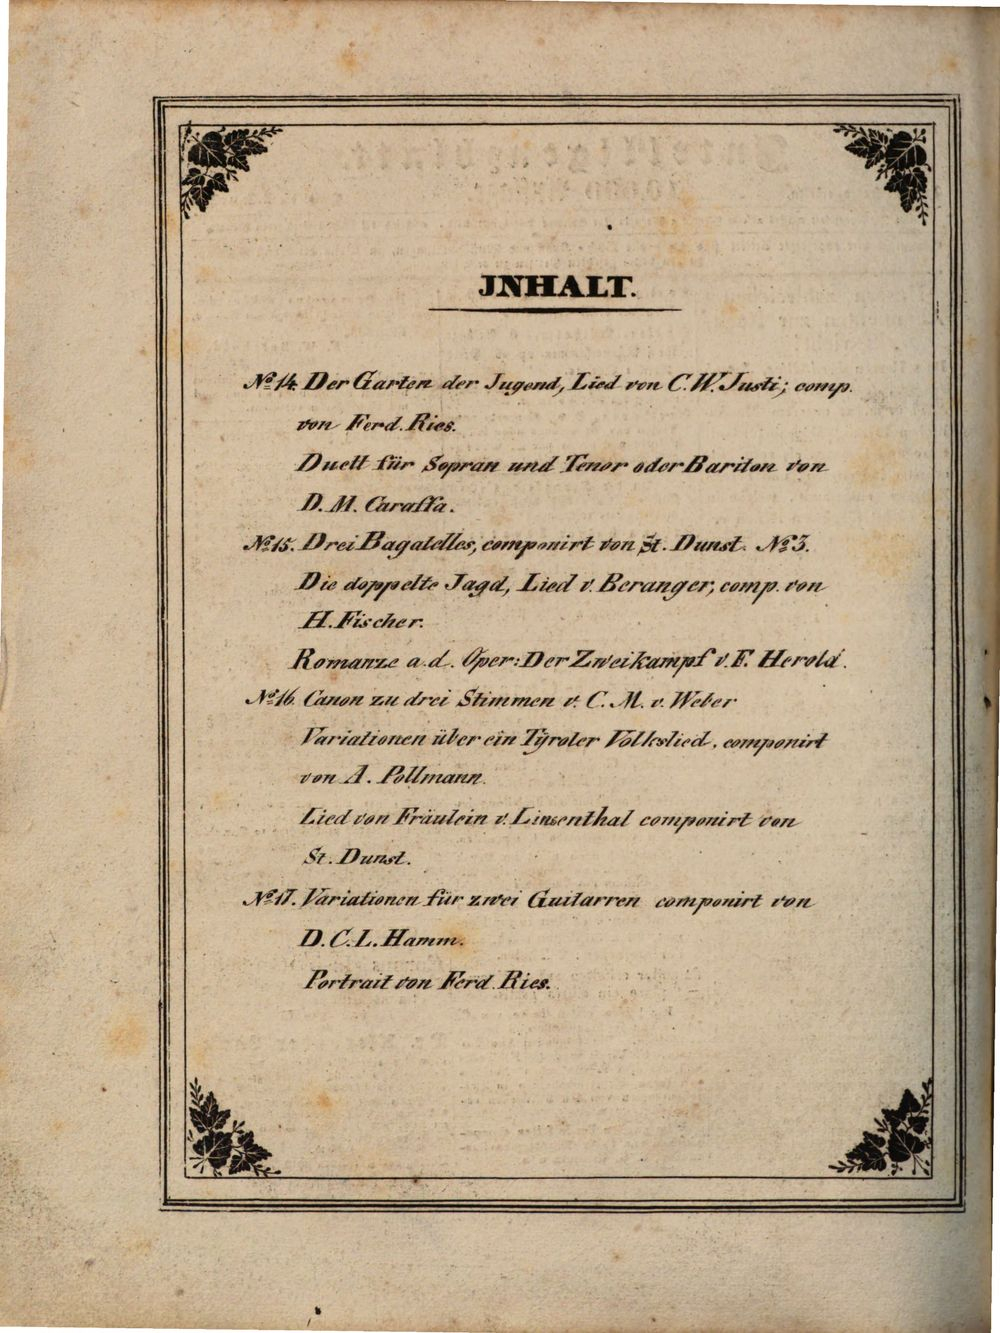 JNHALT.
No 14. Der Garten der Jugend, Lied von C. W. Justi; comp.
von Ferd. Ries.
Duett für Sopran und Tenor oder Bariton von
D. M. Caraffa.
No 15. Drei Bagatelles, componirt von St. Dunst. No 3.
Die doppelte Jagd, Lied v. Beranger, comp. von
H. Fischer.
Romanze a. d. Oper: Der Zweikampf v. F. Herold.
No 16. Canon zu drei Stimmen v. C. M. v. Weber
Variationen über ein Tÿroler Volkslied, componirt
von A. Pollmann.
Lied von Fräulein v. Linsenthal componirt von
St. Dunst.
No 17. Variationen für zwei Guitarren componirt von
D. C. L. Hamm.
Portrait von Ferd. Ries.